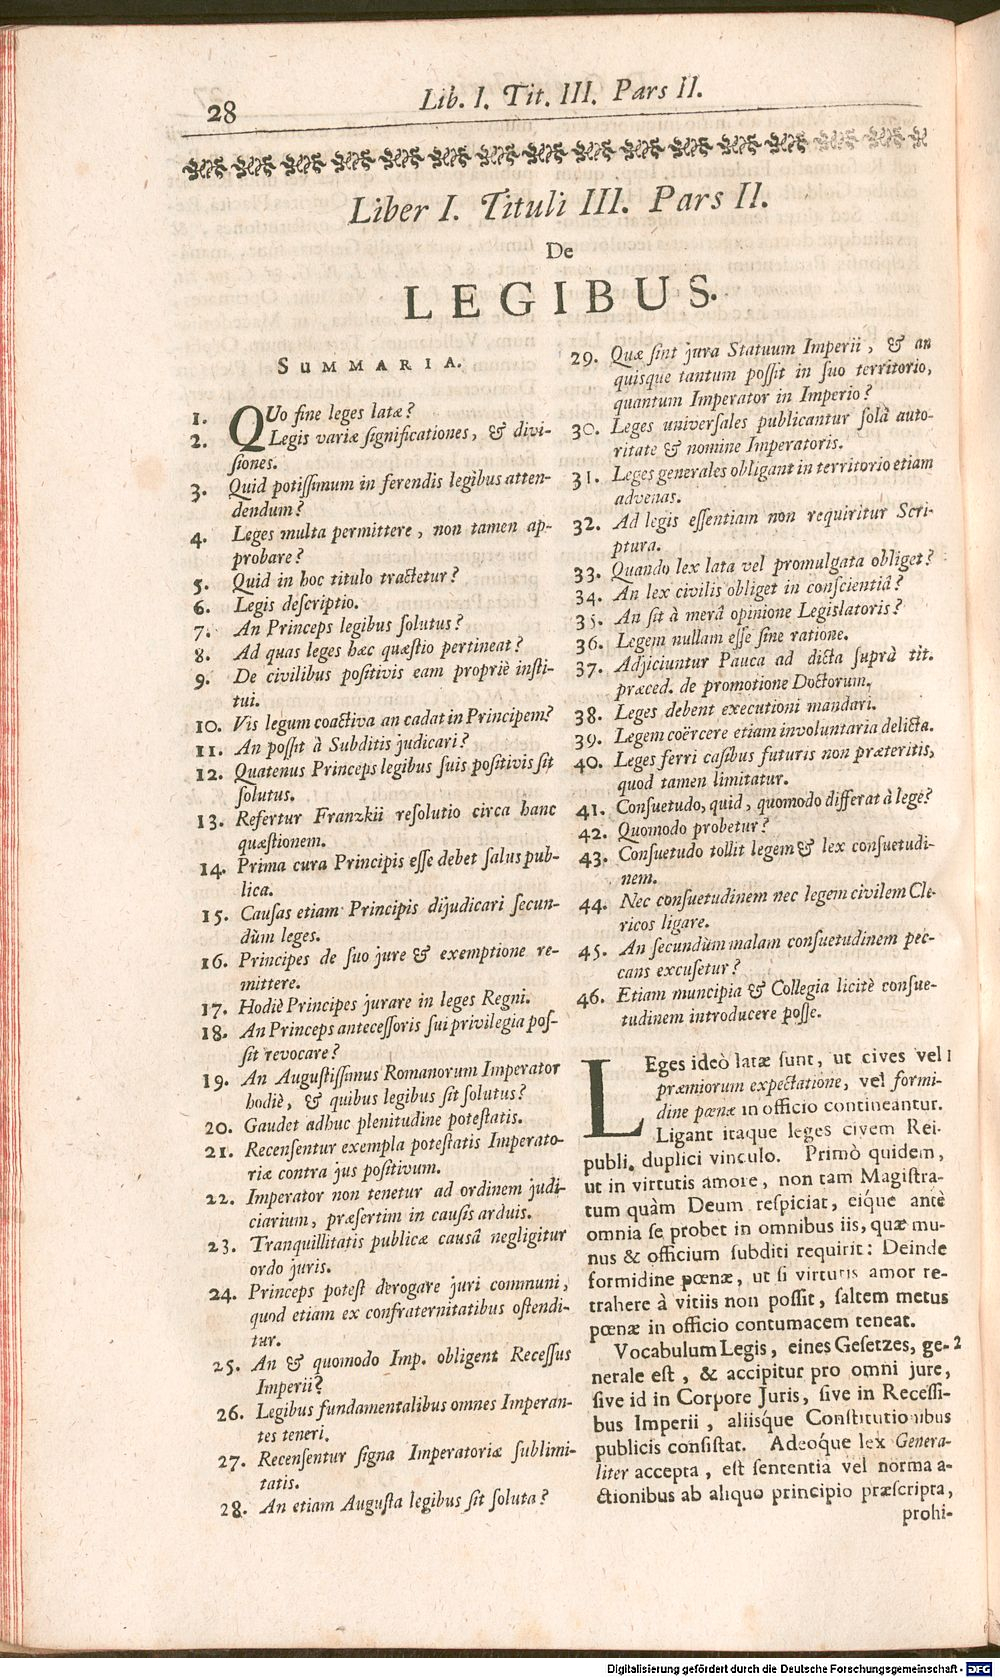 28
Lib. I. Tit. III. Pars II.
Liber I. Tituli III. Pars II.
De
LEGIBUS.
SUMMARIA.
1. QUo fine leges latæ?
2. Legis variæ significationes, & divi-
siones.
3. Quid potissimum in ferendis legibus atten-
dendum?
4. Leges multa permittere, non tamen ap-
probare?
5. Quid in hoc titulo tractetur?
6. Legis descriptio.
7. An Princeps legibus solutus?
8. Ad quas leges hæc quæstio pertineat?
9. De civilibus positivis eam propriè insti-
tui.
10. Vis legum coactiva an cadat in Principem?
11. An possit à Subditis judicari?
12. Quatenus Princeps legibus suis positivis sit
solutus.
13. Refertur Franzkii resolutio circa hanc
quæstionem.
14. Prima cura Principis esse debet salus pub-
lica.
15. Causas etiam Principis dijudicari secun-
dùm leges.
16. Principes de suo jure & exemptione re-
mittere.
17. Hodiè Principes jurare in leges Regni.
18. An Princeps antecessoris sui privilegia pos-
sit revocare?
19. An Augustissimus Romanorum Imperator
hodiè, & quibus legibus sit solutus?
20. Gaudet adhuc plenitudine potestatis.
21. Recensentur exempla potestatis Imperato-
riæ contra jus positivum.
22. Imperator non tenetur ad ordinem judi-
ciarium, præsertim in causis arduis.
23. Tranquillitatis publicæ causâ negligitur
ordo juris.
24. Princeps potest derogare juri communi,
quod etiam ex confraternitatibus ostendi-
tur.
25. An & quomodo Imp. obligent Recessus
Imperii?
26. Legibus fundamentalibus omnes Imperan-
tes teneri.
27. Recensentur signa Imperatoriæ sublimi-
tatis.
28. An etiam Augusta legibus sit soluta?
29. Quæ sint jura Statuum Imperii, & an
quisque tantum possit in suo territorio,
quantum Imperator in Imperio?
30. Leges universales publicantur solâ auto-
ritate & nomine Imperatoris.
31. Leges generales obligant in territorio etiam
advenas.
32. Ad legis essentiam non requiritur Scri-
ptura.
33. Quando lex lata vel promulgata obliget?
34. An lex civilis obliget in conscientiâ?
35. An sit à merâ opinione Legislatoris?
36. Legem nullam esse sine ratione.
37. Adjiciuntur Pauca ad dicta suprà tit.
præced. de promotione Doctorum.
38. Leges debent executioni mandari.
39. Legem coërcere etiam involuntaria delicta.
40. Leges ferri casibus futuris non præteritis,
quod tamen limitatur.
41. Consuetudo, quid, quomodo differat à lege?
42. Quomodo probetur?
43. Consuetudo tollit legem & lex consuetudi-
nem.
44. Nec consuetudinem nec legem civilem Cle-
ricos ligare.
45. An secundùm malam consuetudinem pec-
cans excusetur?
46. Etiam muncipia & Collegia licitè consue-
tudinem introducere posse.
LEges ideò latæ sunt, ut cives vel 1
præmiorum expectatione, vel formi-
dine pœnæ in officio contineantur.
Ligant itaque leges civem Rei-
publi. duplici vinculo. Primò quidem,
ut in virtutis amore, non tam Magistra-
tum quàm Deum respiciat, eíque antè
omnia se probet in omnibus iis, quæ mu-
nus & officium subditi requirit: Deinde
formidine pœnæ, ut si virtutis amor re-
trahere à vitiis non possit, saltem metus
pœnæ in officio contumacem teneat.
Vocabulum Legis, eines Gesetzes, ge- 2
nerale est, & accipitur pro omni jure,
sive id in Corpore Juris, sive in Recessi-
bus Imperii, aliisque Constitutionibus
publicis consistat. Adeóque lex Genera-
liter accepta, est sententia vel norma a-
ctionibus ab aliquo principio præscripta,
prohi-
Digitalisierung gefördert durch die Deutsche Forschungsgemeinschaft - DFG